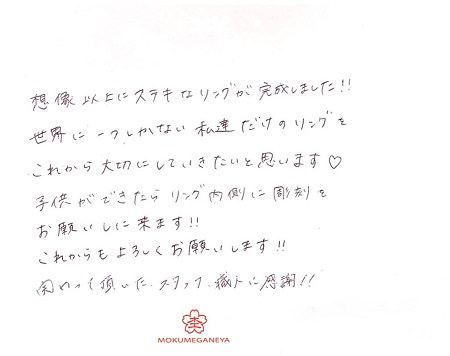 想像以上にステキなリングが完成しました!!
世界に一つしかない私達だけのリングを
これから大切にしていきたいと思います♡
子供ができたらリング内側に彫刻を
お願いしに来ます!!
これからもよろしくお願いします!!
関わって頂いた、スタッフ、職人に感謝!!
杢
MOKUMEGANEYA